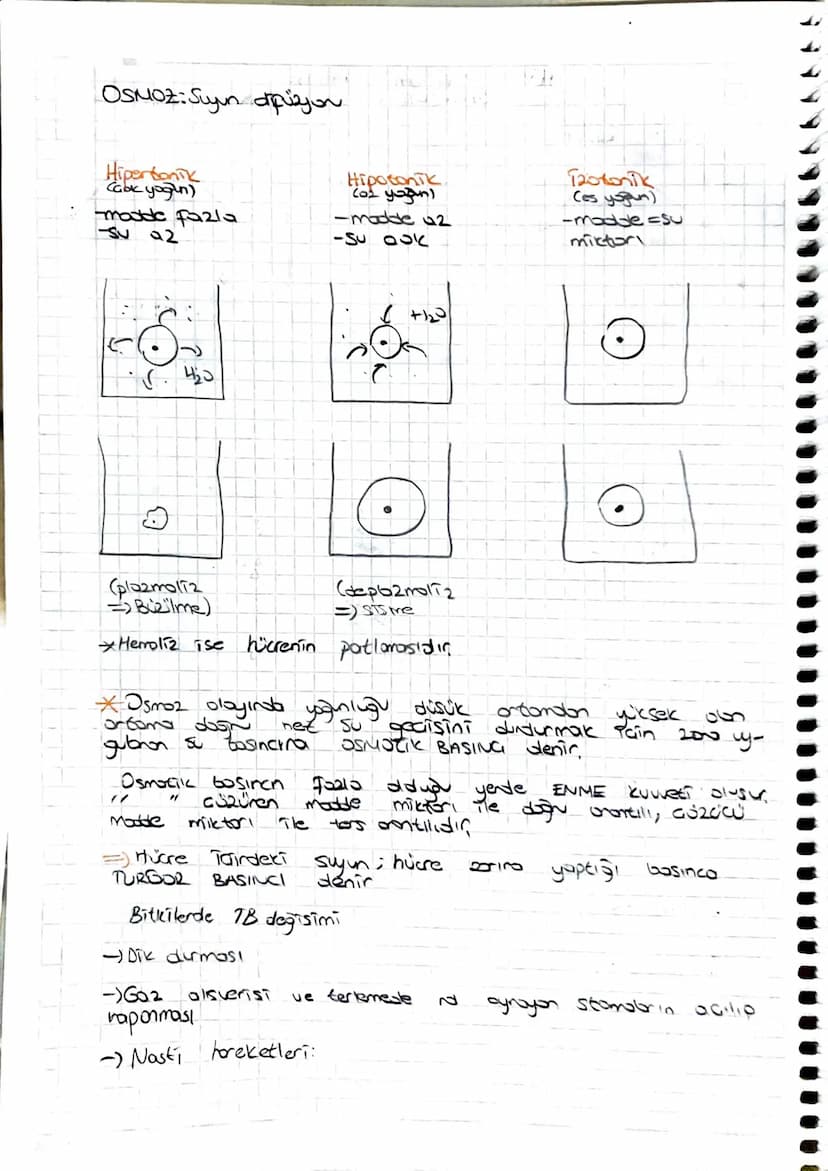 OSMOZ: Suyun difüzyonu
Hipertonik
(çok yoğun)
-madde fazla
-su az
Hipotonik
(az yoğun)
-madde az
-su çok
İzotonik
(eş yoğun)
-madde = su
miktarı
H2O
H2O
(plazmoliz
=> Büzülme)
(deplazmoliz
=> şişme
*Hemoliz ise hücrenin patlamasıdır.
*Osmoz olayında yoğunluğu düşük ortamdan yüksek olan
ortama doğru net su geçişini durdurmak için zara uy-
gulanan su basıncına OSMOTİK BASINCI denir.
Osmotik basıncın fazla olduğu yerde EMME kuvveti oluşur.
" " çözünen madde miktarı ile doğru orantılı, çözücü
madde miktarı ile ters orantılıdır.
=> Hücre içindeki suyun; hücre zarına yaptığı basınca
TURGOR BASINCI denir
Bitkilerde TB değişimi
-> Dik durması
-> Gaz alışverişi ve terlemede rol oynayan stomaların açılıp
kapanması
-> Nasti hareketleri: